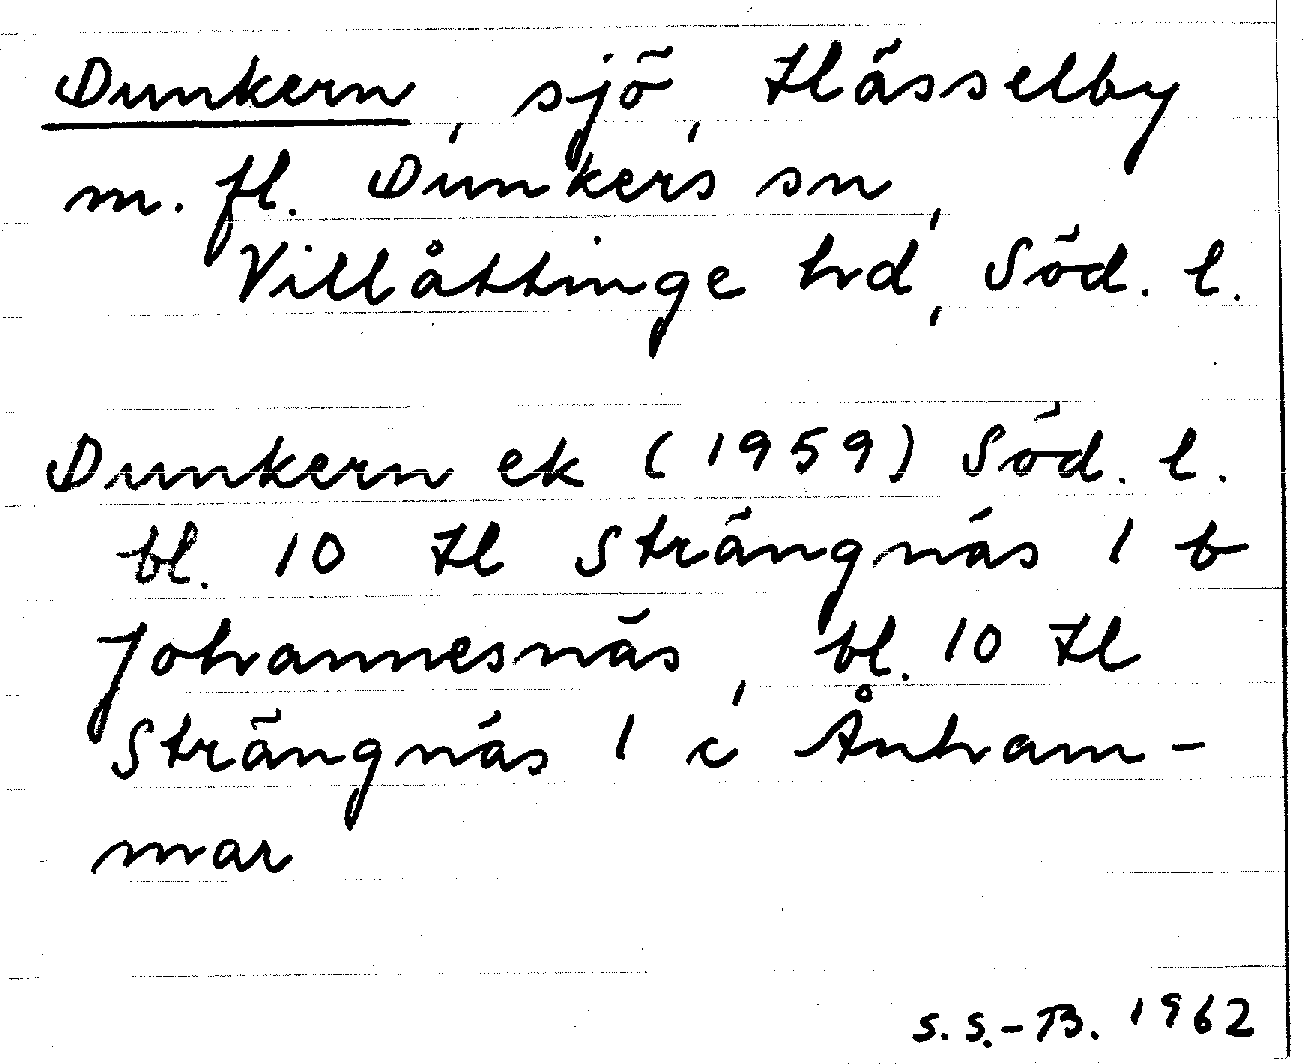 Dunkern, sjö, Hässelby
m. fl. Dunkers sn,
Villåttinge hd, Söd. l.
Dunkern ek (1959) Söd. l.
bl. 10 H Strängnäs 1 b
Johannesnäs, bl. 10 H
Strängnäs 1 c Ånham-
mar
S. S.-B. 1962